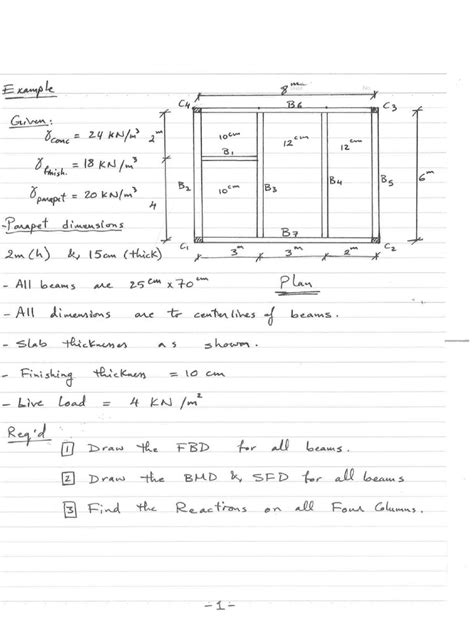 Example
Given:
γconc = 24 KN/m³
γfinish. = 18 KN/m³
γparapet = 20 KN/m³
- Parapet dimensions
2m (h) &, 15cm (thick)
8m
C4
B6
C3
2m
10cm
12cm
12cm
B1
B2
10cm
B3
B4
B5
6m
4
C1
B7
C2
3m
3m
2m
Plan
- All beams are 25cm x 70cm
- All dimensions are to centerlines of beams.
- Slab thicknesses as shown.
- Finishing thickness = 10 cm
- Live Load = 4 KN/m²
Req'd
1 Draw the FBD for all beams.
2 Draw the BMD &, SFD for all beams
3 Find the Reactions on all Four Columns.
-1-